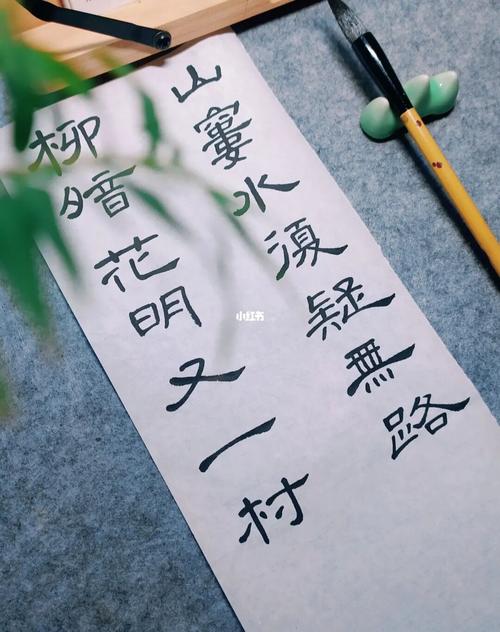 山窶水須疑無路
柳暗花明又一村
小红书